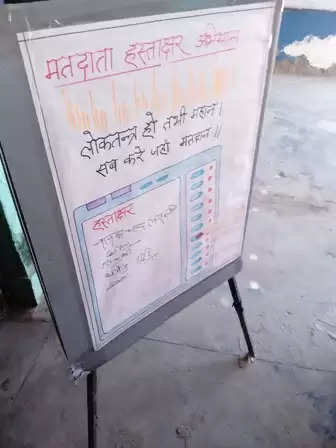 मतदाता हस्ताक्षर अभियान
लोकतन्त्र हो तभी महान।
सब करे यहाँ मतदान।।
हस्ताक्षर